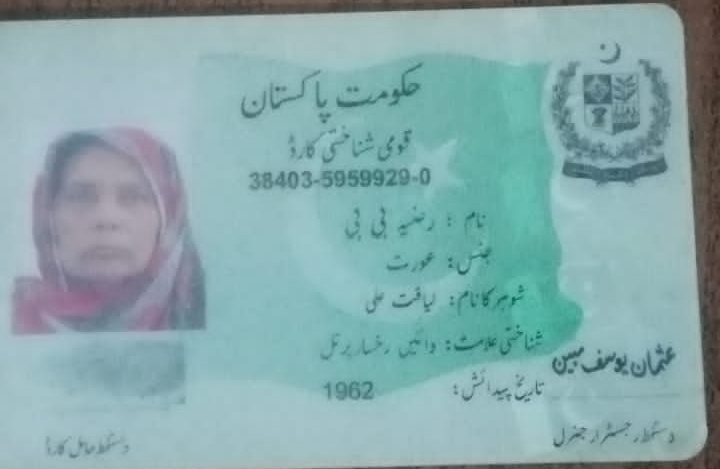 حکومت پاکستان
قومی شناختی کارڈ
38403-5959929-0
نام : رضیہ بی بی
جنس: عورت
شوہر کا نام: لیاقت علی
شناختی علامت: دائیں رخسار پر تل
تاریخ پیدائش: 1962
عثمان یوسف مبین
دستخط رجسٹرار جنرل
دستخط حامل کارڈ